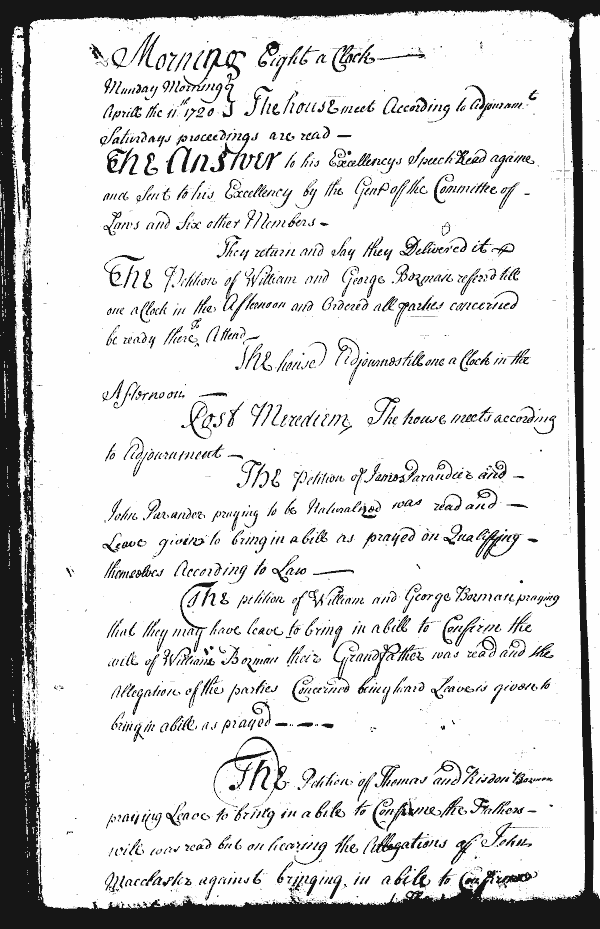 Morning Eight a Clock
Munday Morning
Aprill the 11th 1720 The house meet According to Adjournmt
Saturdays proceedings are read
The Answer to his Excellencys Speech Read againe
and Sent to his Excellency by the Gent of the Committee of
Laws and Six other Members
They return and Say they Delivered it
The Petition of William and George Bozman referd till
one a Clock in the Afternoon and Ordered all parties concerned
be ready there to Attend
The house Adjournes till one a Clock in the
Afternoon
Post Merediem The house meets according
to Adjournment
The Petition of James and
John praying to be Naturalized was read and
Leave given to bring in a bill as prayed on Qualifying
themselves According to Law
The petition of William and George Bozman praying
that they may have leave to bring in a bill to Confirm the
will of William Bozman their Grandfather was read and the
Allegation of the parties Concerned being heard Leave is given to
bring in a bill as prayed
The Petition of Thomas and Risdon Bozman
praying Leave to bring in a bile to Confirme the Fathers
will was read but on hearing the Allegations of John
Macclaster against bringing in a bile to Confirme